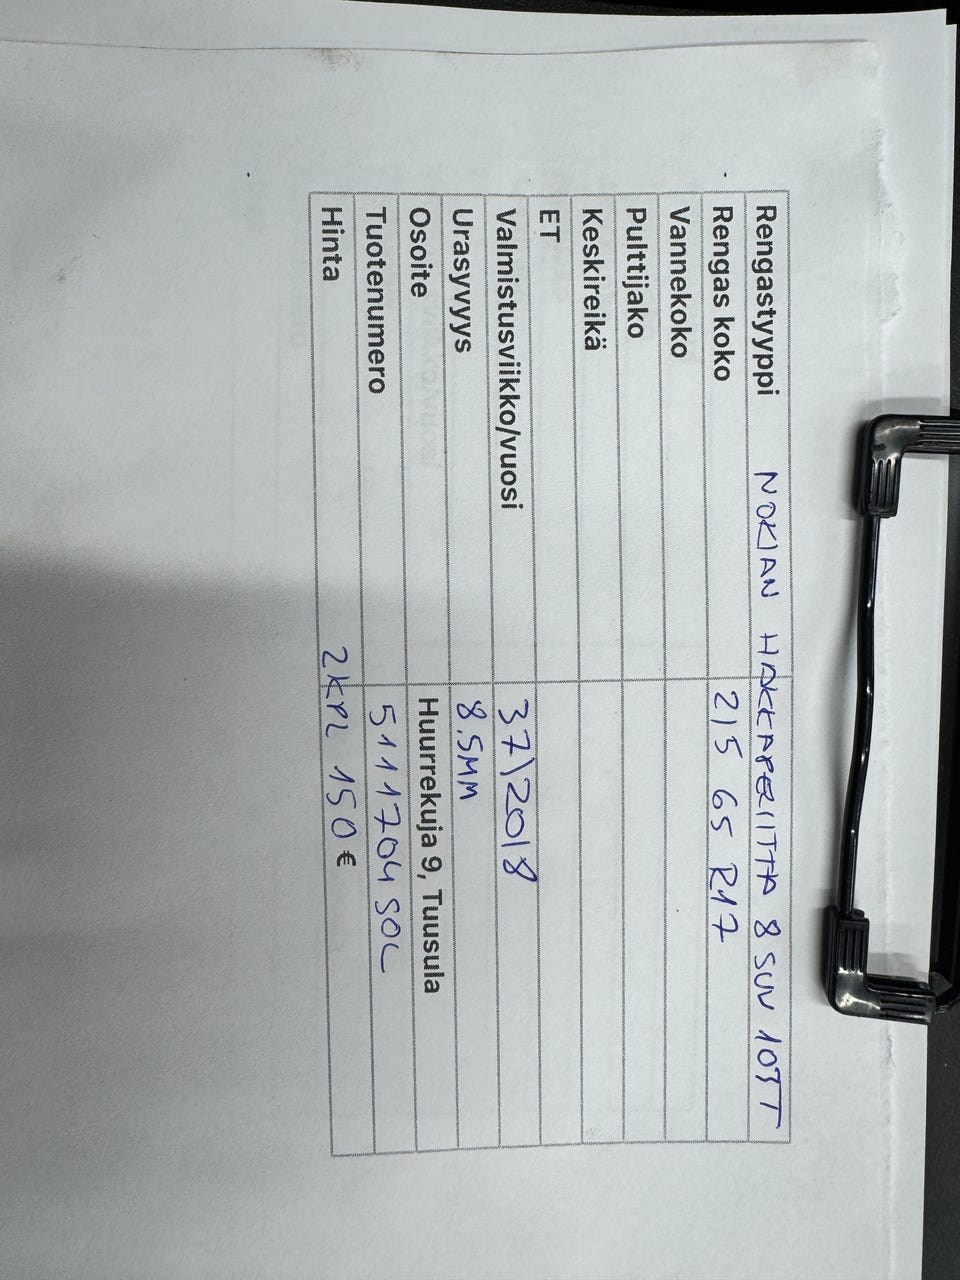 Rengastyyppi NOKIAN HAKKAPELIITTA 8 SUV 103T
Rengas koko 215 65 R17
Vannekoko
Pulttijako
Keskireikä
ET
Valmistusviikko/vuosi 37\2018
Urasyvyys 8.5MM
Osoite Huurrekuja 9, Tuusula
Tuotenumero 5111704 SOL
Hinta 2KPL 150 €